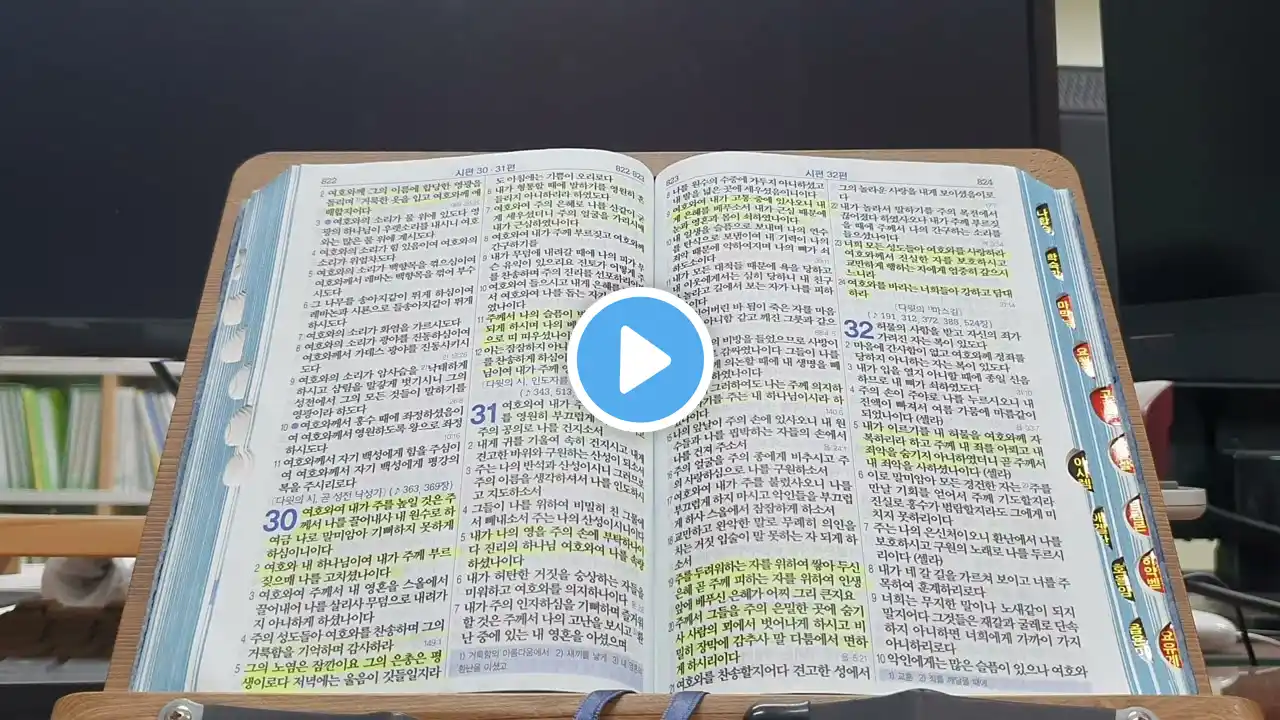 822
시편 30 · 31편
822 823
2 여호와께 그의 이름에 합당한 영광을
돌리며 거룩한 옷을 입고 여호와께 예
배할지어다
3 여호와의 소리가 물 위에 있도다 영
광의 하나님이 우렛소리를 내시니 여호
와는 많은 물 위에 계시도다
4 여호와의 소리가 힘 있음이여 여호와의
소리가 위엄차도다
5 여호와의 소리가 백향목을 꺾으심이여
여호와께서 레바논 백향목을 꺾어 부수
시도다
6 그 나무를 송아지같이 뛰게 하심이여
레바논과 시룐으로 들송아지같이 뛰게
하시도다
7 여호와의 소리가 화염을 가르시도다
8 여호와의 소리가 광야를 진동하심이여
여호와께서 가데스 광야를 진동시키시
도다
9 여호와의 소리가 암사슴을 낙태하게
하시고 삼림을 말갛게 벗기시니 그의
성전에서 그의 모든 것들이 말하기를
영광이라 하도다
10 여호와께서 홍수 때에 좌정하셨음이
여 여호와께서 영원하도록 왕으로 좌정
하시도다
11 여호와께서 자기 백성에게 힘을 주심이
여 여호와께서 자기 백성에게 평강의
복을 주시리로다
[다윗의 시, 곧 성전 낙성가] (♪363, 369장)
30 여호와여 내가 주를 높일 것은 주
께서 나를 끌어내사 내 원수로 하
여금 나로 말미암아 기뻐하지 못하게
하심이니이다
2 여호와 내 하나님이여 내가 주께 부르
짖으매 나를 고치셨나이다
3 여호와여 주께서 내 영혼을 스올에서
끌어내어 나를 살리사 무덤으로 내려가
지 아니하게 하셨나이다
4 주의 성도들아 여호와를 찬송하며 그의
거룩함을 기억하며 감사하라
5 그의 노염은 잠깐이요 그의 은총은 평
생이로다 저녁에는 울음이 깃들일지라
도 아침에는 기쁨이 오리로다
6 내가 형통할 때에 말하기를 영원히 흔
들리지 아니하리라 하였도다
7 여호와여 주의 은혜로 나를 산같이 굳
게 세우셨더니 주의 얼굴을 가리시매
내가 근심하였나이다
8 여호와여 내가 주께 부르짖고 여호와께
간구하기를
9 내가 무덤에 내려갈 때에 나의 피가 무
슨 유익이 있으리요 진토가 어떻게
를 찬송하며 주의 진리를 선포하리
10 여호와여 들으시고 내게 은혜를
서 여호와여 나를 돕는 자가
였나이다
11 주께서 나의 슬픔이
되게 하시며 나의
으로 띠 띠우셨나이
12 이는 잠잠하지
를 찬송하게 하심이
님이여 내가 주께
[다윗의 시, 인도자를
(♪343, 513
31 여호와여 내가 주
를 영원히 부끄럽게
주의 공의로 나를 건지소서
2 내게 귀를 기울여 속히 건지시고 내게
견고한 바위와 구원하는 산성이 되소서
3 주는 나의 반석과 산성이시니 그러므로
주의 이름을 생각하셔서 나를 인도하시
고 지도하소서
4 그들이 나를 위하여 비밀히 친 그물에
서 빼내소서 주는 나의 산성이시니이다
5 내가 나의 영을 주의 손에 부탁하나이
다 진리의 하나님 여호와여 나를 속량
하셨나이다
6 내가 허탄한 거짓을 숭상하는 자들을
미워하고 여호와를 의지하나이다
7 내가 주의 인자하심을 기뻐하며 즐거워
할 것은 주께서 나의 고난을 보시고 환
난 중에 있는 내 영혼을 아셨으며
1) 거룩함의 아름다움에서 2) 새끼를 낳게
환난을 아셨고
823
시편 32편
824
8 나를 원수의 수중에 가두지 아니하셨고
내 발을 넓은 곳에 세우셨음이니이다
9 여호와여 내가 고통 중에 있사오니 내
게 은혜를 베푸소서 내가 근심 때문에
눈과 영혼과 몸이 쇠하였나이다
10 내 일생을 슬픔으로 보내며 나의 연수
를 탄식으로 보냄이여 내 기력이 나의
죄악 때문에 약하여지며 나의 뼈가 쇠
하도소이다
내가 모든 대적들 때문에 욕을 당하고
내 이웃에게서는 심히 당하니 내 친구
가 놀라고 길에서 보는 자가 나를 피하
잊어버린 바 됨이 죽은 자를 마음
아니함 같고 깨진 그릇과 같으
의 비방을 들었으므로 사방이
감싸였나이다 그들이 나를
의논할 때에 내 생명을 빼
그러하여도 나는 주께 의지하
기를 주는 내 하나님이시라 하
였나이다
15 나의 앞날이 주의 손에 있사오니 내 원
수들과 나를 핍박하는 자들의 손에서
나를 건져 주소서
16 주의 얼굴을 주의 종에게 비추시고 주
의 사랑하심으로 나를 구원하소서
17 여호와여 내가 주를 불렀사오니 나를
부끄럽게 하지 마시고 악인들을 부끄럽
게 하사 스올에서 잠잠하게 하소서
18 교만하고 완악한 말로 무례히 의인을
치는 거짓 입술이 말 못하는 자 되게 하
소서
19 주를 두려워하는 자를 위하여 쌓아 두신
은혜 곧 주께 피하는 자를 위하여 인생
앞에 베푸신 은혜가 어찌 그리 큰지요
20 주께서 그들을 주의 은밀한 곳에 숨기
사 사람의 꾀에서 벗어나게 하시고 비
밀히 장막에 감추사 말 다툼에서 면하
게 하시리이다
21 여호와를 찬송할지어다 견고한 성에서
그의 놀라운 사랑을 내게 보이셨음이로
다
22 내가 놀라서 말하기를 주의 목전에서
끊어졌다 하였사오나 내가 주께 부르짖
을 때에 주께서 나의 간구하는 소리를
들으셨나이다
23 너희 모든 성도들아 여호와를 사랑하라
여호와께서 진실한 자를 보호하시고
교만하게 행하는 자에게 엄중히 갚으시
느니라
24 여호와를 바라는 너희들아 강하고 담대
하라
[다윗의 마스길]
(♪191, 312, 372, 388, 524장)
32 허물의 사함을 받고 자신의 죄가
가려진 자는 복이 있도다
2 마음에 간사함이 없고 여호와께 정죄를
당하지 아니하는 자는 복이 있도다
3 내가 입을 열지 아니할 때에 종일 신음
하므로 내 뼈가 쇠하였도다
4 주의 손이 주야로 나를 누르시오니 내
진액이 빠져서 여름 가뭄에 마름같이
되었나이다 (셀라)
5 내가 이르기를 내 허물을 여호와께 자
복하리라 하고 주께 내 죄를 아뢰고 내
죄악을 숨기지 아니하였더니 곧 주께서
내 죄악을 사하셨나이다 (셀라)
6 이로 말미암아 모든 경건한 자는 주를
만날 기회를 얻어서 주께 기도할지라
진실로 홍수가 범람할지라도 그에게 미
치지 못하리이다
7 주는 나의 은신처이오니 환난에서 나를
보호하시고 구원의 노래로 나를 두르시
리이다 (셀라)
8 내가 네 갈 길을 가르쳐 보이고 너를 주
목하여 훈계하리로다
9 너희는 무지한 말이나 노새같이 되지
말지어다 그것들은 재갈과 굴레로 단속
하지 아니하면 너희에게 가까이 가지
아니하리로다
10 악인에게는 많은 슬픔이 있으나 여호와
1) 교훈 2) 죄를 깨달을 때에